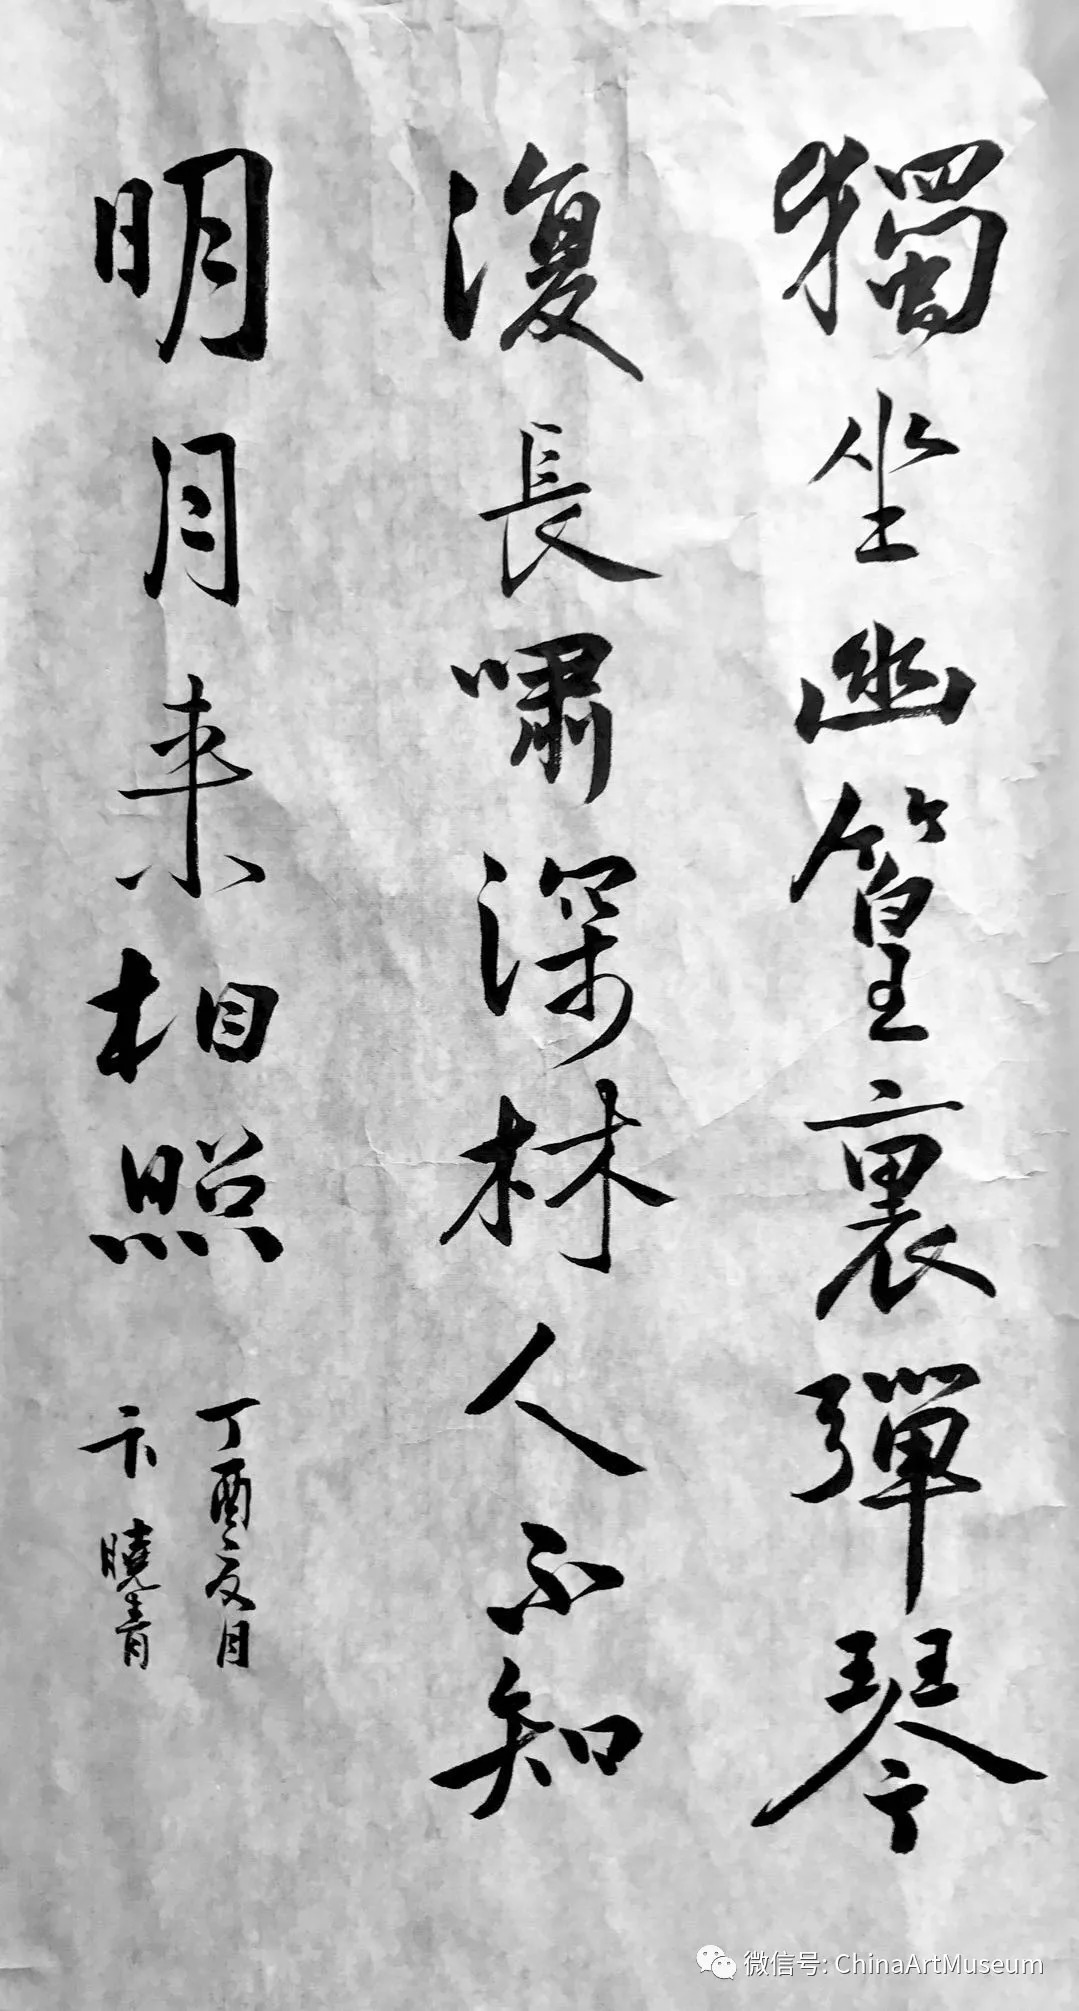 獨坐幽篁裏彈琴
復長嘯深林人不知
明月来相照
丁酉夏月
卞曉青
微信号: ChinaArtMuseum